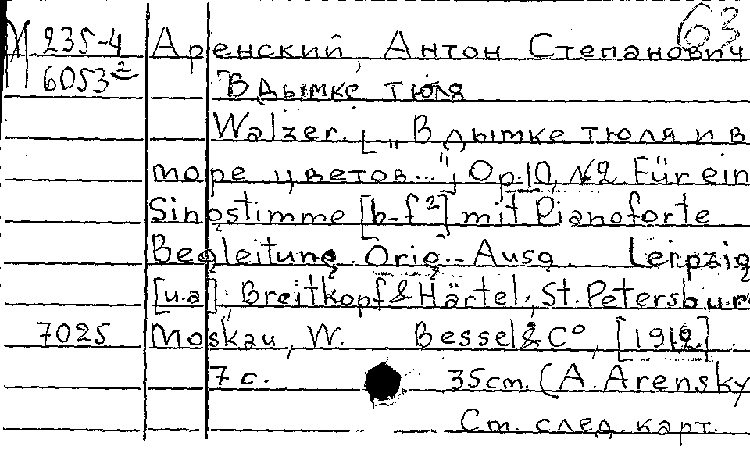 63
М 235-4 Аренский, Антон Степанович
6053² В дымке тюля
Walzer. [„В дымке тюля и в
море цветов..."], Op.10, №2. Für ein
Singstimme [b-f²] mit Pianoforte
Begleitung. Orig.-Ausg. Leipzig
[u.a]: Breitkopf & Härtel, St. Petersbur
7025 Moskau, W. Bessel & C°, [1912]
7 с. 35cm. (A. Arensky
См. след. карт.